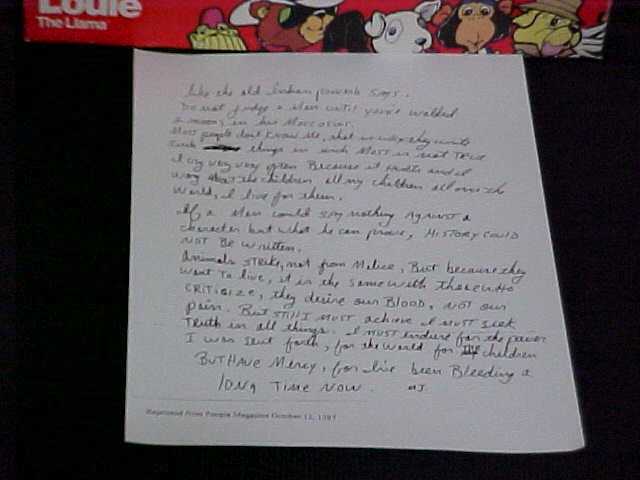 Louie
The Llama
like the old Indian proverb says.
Do not judge a Man until you've walked
2 moons in his Moccosins.
Most people don't know me, that is why they write
such things in wich MOST is not TRUE
I cry very very often Because it Hurts and I
worry about the children all my children all over the
World, I live for them.
If a Man could say nothing AGAINST a
character but what he can prove, HISTORY COULD
NOT BE Written.
Animals STRIKE, not from Malice, But because they
want To live, it is the same with those who
CRITICIZE, they desire our BLOOD, NOT our
pain. But STILL I MUST achieve I MUST seek
Truth in all things. I MUST endure for the power
I was sent forth, for the World for the children
BUT HAVE Mercy, for I've been Bleeding a
long Time NOW. MJ.
Reprinted from People Magazine October 12, 1987